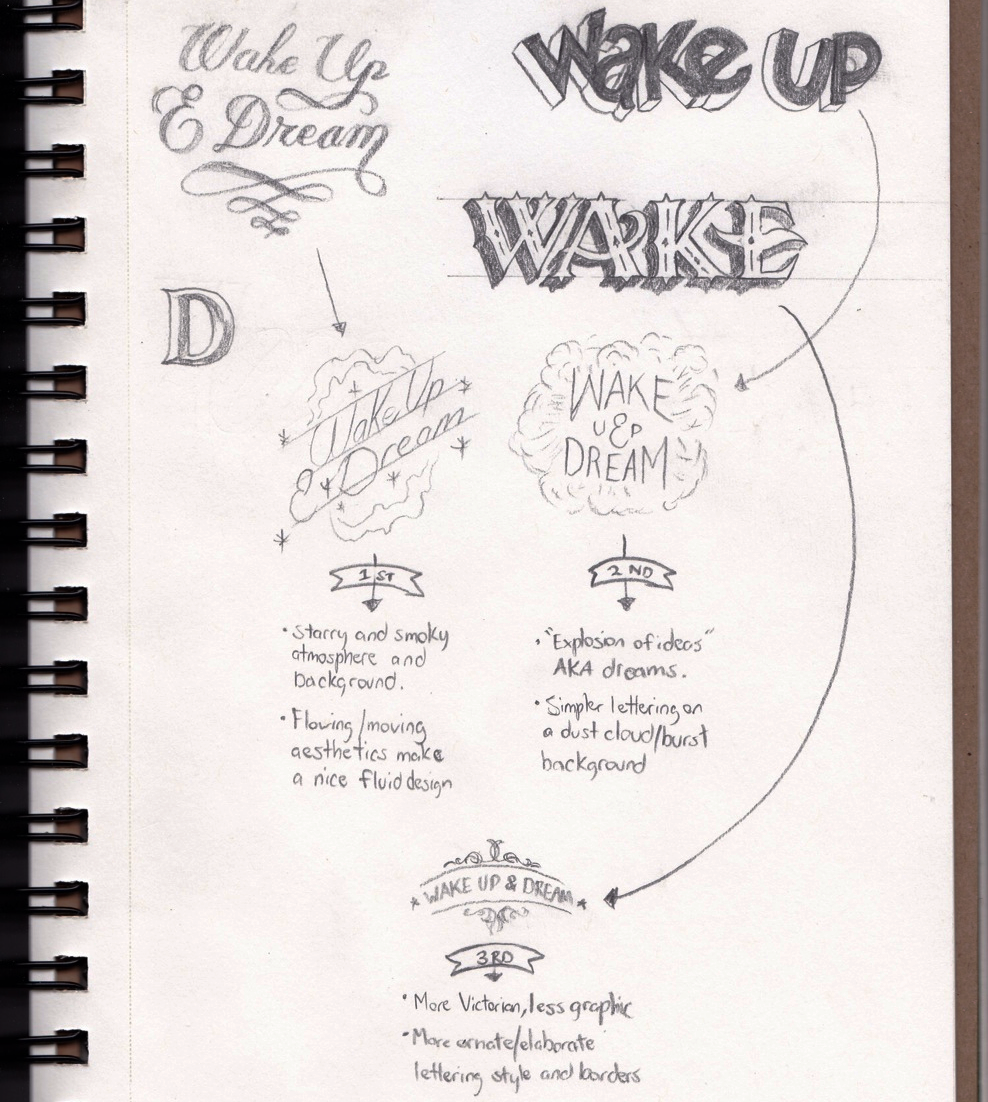 Wake Up
& Dream
Wake up
WAKE
D
Wake Up
& Dream
WAKE
U & P
DREAM
1ST
• Starry and smoky
atmosphere and
background.
• Flowing/moving
aesthetics make
a nice fluid design
2ND
• "Explosion of ideas"
AKA dreams.
• Simpler lettering on
a dust cloud/burst
background
WAKE UP & DREAM
3RD
• More Victorian, less graphic
• More ornate/elaborate
lettering style and borders